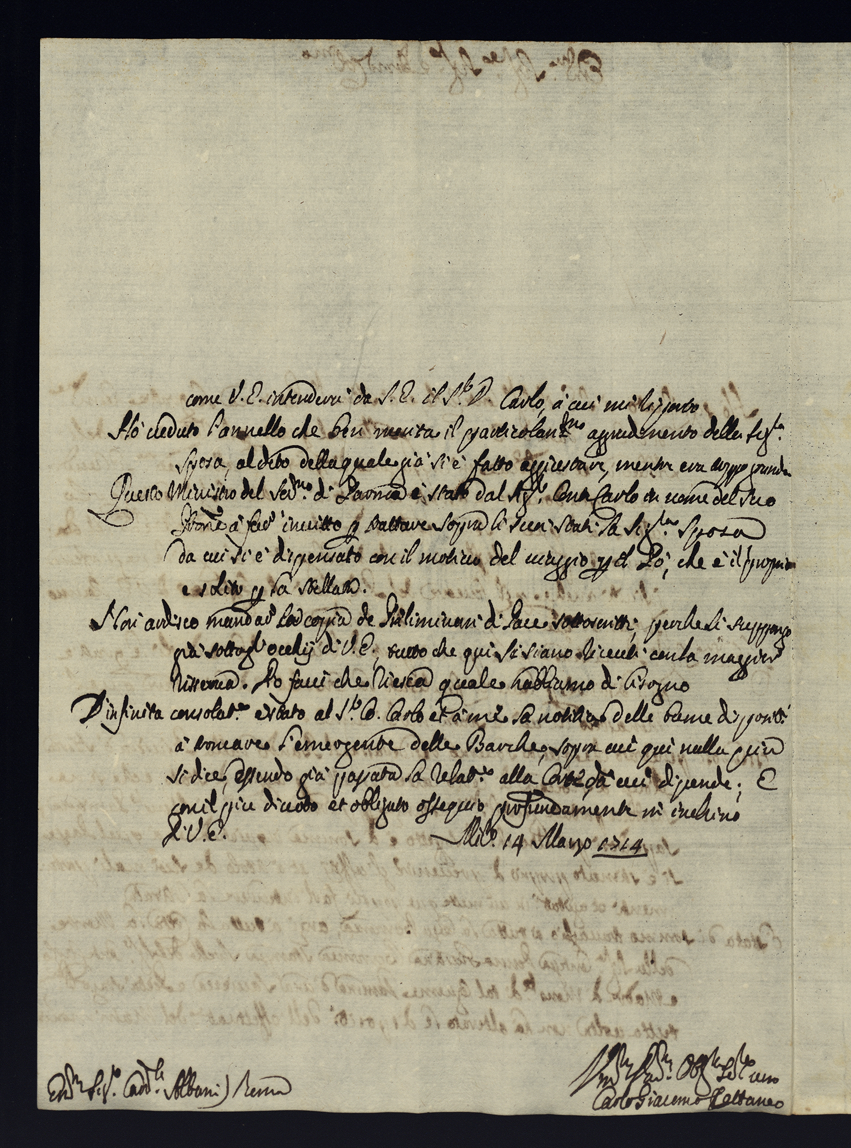 come V.E. intenderà da S.E. il S.r D. Carlo, à cui mi riporto
Hò veduto l'annello che ben merita il particolariss.mo aggradimento della Sig.ra
Sposa, al dito della quale già si è fatto aggiustare, mentre era troppo grande
Questo Ministro del Ser.mo di Parma è stato dal Sig.r Don Carlo in nome del suo
Prone à far invitto p trattare sopra li suoi stati la Sig.ra Sposa
da cui si è dispensato con il motivo del viaggio p il Pò, che è il proprio
e solito p la
Non ardisco mandar la copia de Preliminari di Pace sottoscritti, perche li suppongo
già sotto gl'occhij di V.E., tutto che qui si siano ricevuti con la maggior
riserva. Io facci che riesca quale habbiamo di bisogno
D'infinita consolat.e è stato al S.r D. Carlo et à me la notitia delle bame disposit.i
à troncare l'emergente delle Barche, sopra cui qui nulla più
si dice, essendo già passata la relat.e alla Corte da cui dipende; E
con il più divoto et obligato ossequio profundamente m'inchino
di V.E. Mil.o 14 Marzo 1714
Em.mo Sig.r Card.le Albani) Roma
Carlo Giacomo Cattaneo